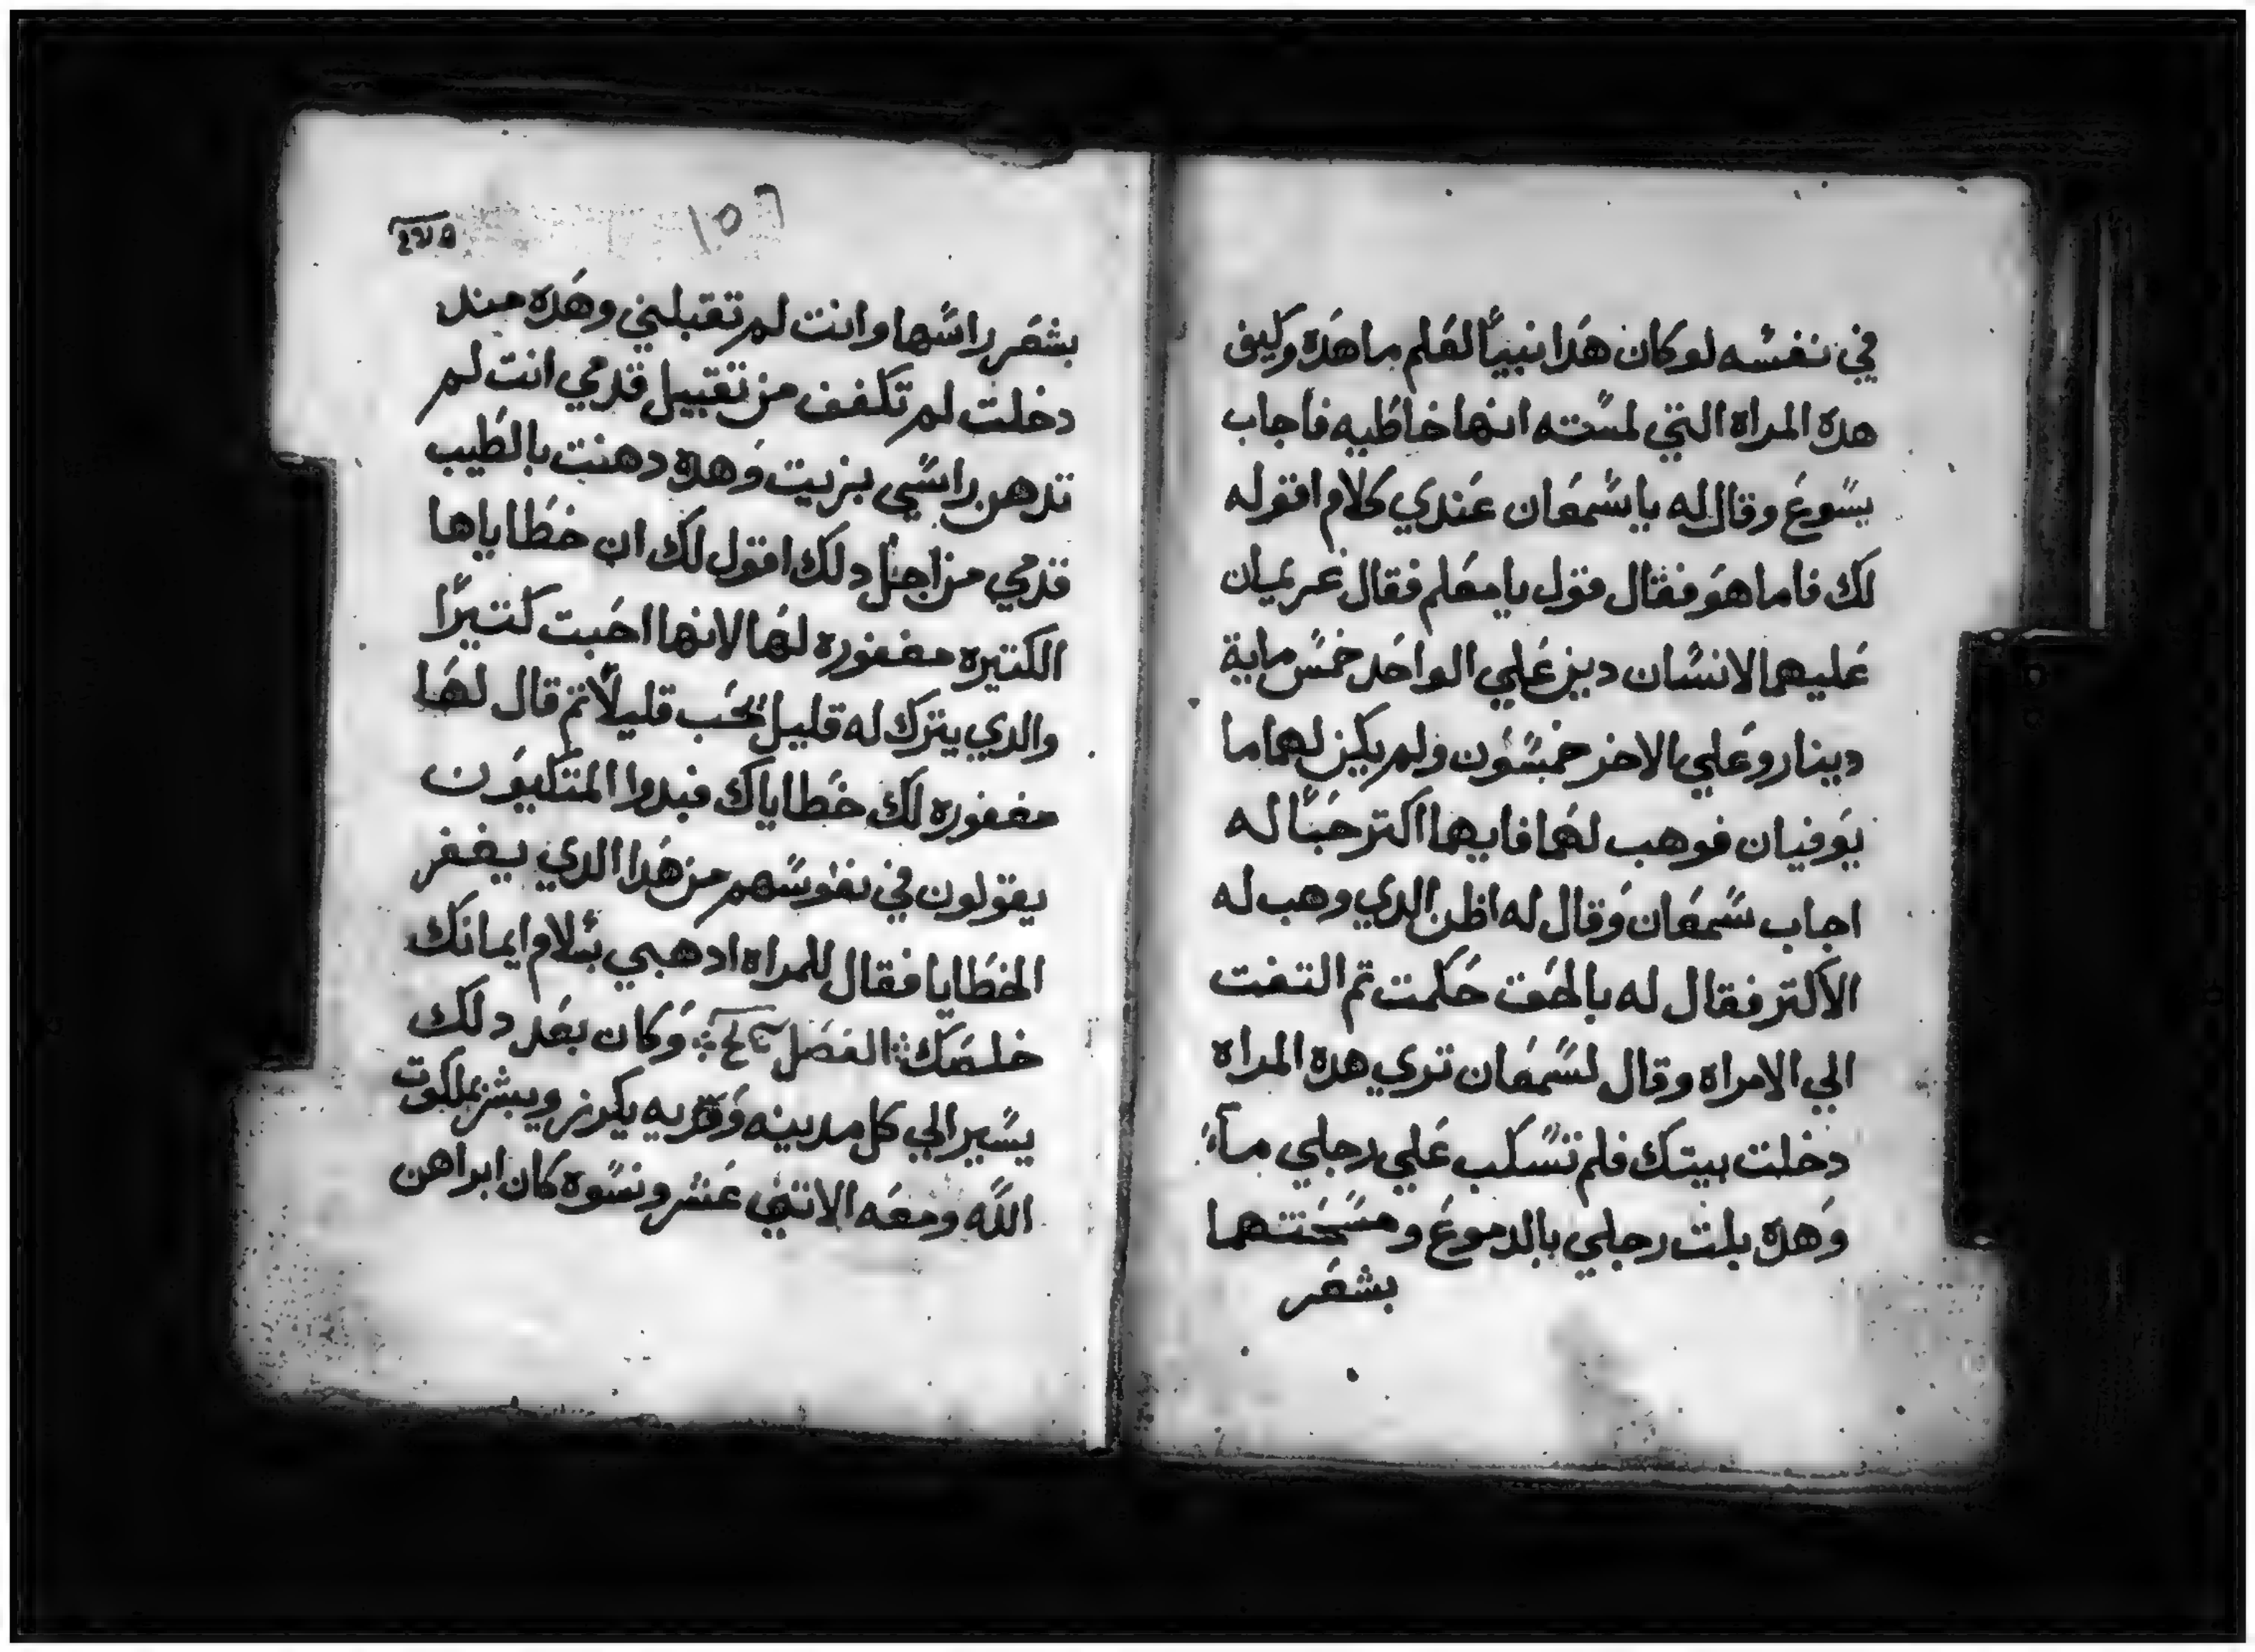 في نفسه لوكان هدا نبياً لعلم ما هده وكيف
هده المراه التي لمسته انها خاطيه فاجاب
يسوع وقال له يا سمعان عندي كلام اقوله
لك فاما هو فقال قول يا معلم فقال غريمان
عليهما لانسان دين علي الواحد خمس ماية
دينار وعلي الاخر خمسون ولم يكن لهما ما
يوفيان فوهب لهما فايهما اكتر حباً له
اجاب سمعان وقال له اظن الدي وهب له
الاكتر فقال له بالحق حكمت تم التفت
الي الامراه وقال لسمعان تري هده المراه
دخلت بيتك فلم تسكب علي رجلي مآء
وهده بلت رجلي بالدموع ومسحتهما
بشعر
١٥٦
بشعر راسها وانت لم تقبلني وهده مند
دخلت لم تكفف من تقبيل قدمي انت لم
تدهن راسي بزيت وهده دهنت بالطيب
قدمي من اجل دلك اقول لك ان خطاياها
الكتيره مغفوره لها لانها احبت كتيرًا
والدي يترك له قليل يحب قليلاً تم قال لها
مغفوره لك خطاياك فبدوا المتكيون
يقولون في نفوسهم من هدا الدي يغفر
الخطايا فقال للمراه ادهبي بسلام ايمانك
خلصك الفصل وكان بعد دلك
يسير الي كل مدينه وقريه يكرز ويبشر بملكوت
الله ومعه الاتني عشر ونسوه كان ابراهن